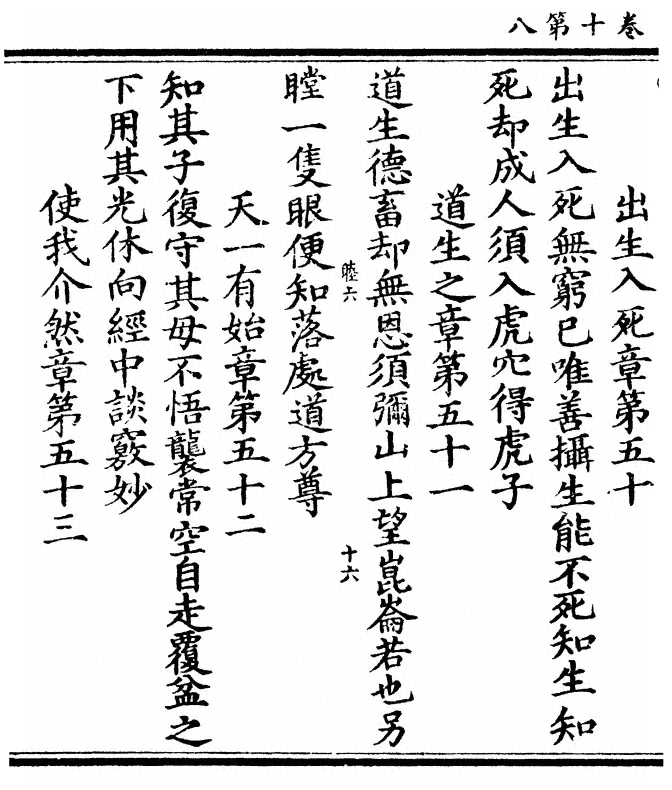 卷十第八
出生入死章第五十
出生入死無窮已唯善攝生能不死知生知
死却成人須入虎穴得虎子
道生之章第五十一
道生德畜却無恩須彌山上望崑崙若也另
睦六
十六
瞠一隻眼便知落處道方尊
天一有始章第五十二
知其子復守其母不悟襲常空自走覆盆之
下用其光休向經中談竅妙
使我介然章第五十三